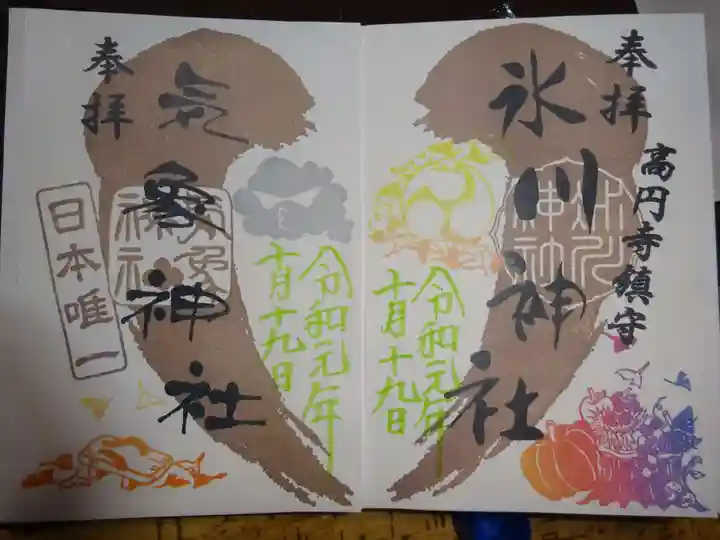 奉拝
高円寺鎮守
氷川神社
氷川神社
令和元年
十月十九日
奉拝
気象神社
気象神社
日本唯一
令和元年
十月十九日